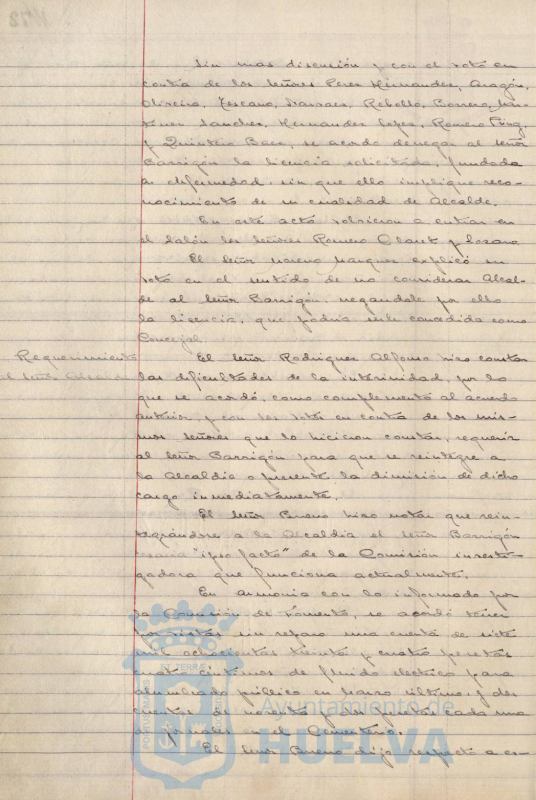 Sin mas discusión y con el voto en
contra de los Señores Perez Hernandez, Aragón,
Oliveira, Tescano, Narvaez, Rebollo, Borrero, Mar-
tinez Sanchez, Hernandez Lopez, Romero Puig
y Quintero Baez, se acordó denegar al Señor
Barrigón la licencia solicitada, fundada
en enfermedad, sin que ello implique reco-
nocimiento de su cualidad de Alcalde.
En este acto volvieron a entrar en
el Salón los Señores Romero Claret y Lozano
El Señor Moreno Marquez explicó su
voto en el sentido de no considerar Alcal-
de al Señor Barrigón, negandole por ello
la licencia, que podria serle concedida como
Concejal.
Requerimiento
al Señor Alcalde
El Señor Rodriguez Alfonso hizo constar
las dificultades de la interinidad, por lo
que se acordó, como complemento al acuerdo
anterior, y con los votos en contra de los mis-
mos señores que lo hicieron constar, requerir
al Señor Barrigón para que se reintegre a
la Alcaldia o presente la dimisión de dicho
cargo inmediatamente.
El Señor Bueno hizo notar que rein-
tegrándose a la Alcaldia el Señor Barrigón
"ipso facto" de la Comisión investi-
gadora que funciona actualmente.
En armonia con lo informado por
la Comisión de Fomento, se acordó tener
por vistas sin reparo una cuenta de siete
mil ochocientas treinta y cuatro pesetas
cuatro céntimos de fluido electrico para
alumbrado público en Marzo último, y dos
cuentas de noventa y dos pesetas cada una
de jornales en el Cementerio.
El Señor Bueno dijo respecto a es-
PORTUS MARIS
ET TERRÆ
Ayuntamiento de
HUELVA